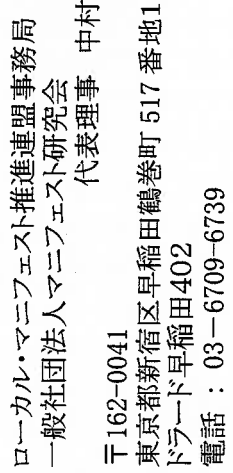 ローカル・マニフェスト推進連盟事務局
一般社団法人マニフェスト研究会
代表理事　中村
〒162-0041
東京都新宿区早稲田鶴巻町 517 番地1
ドラード早稲田402
電話 : 03－6709-6739